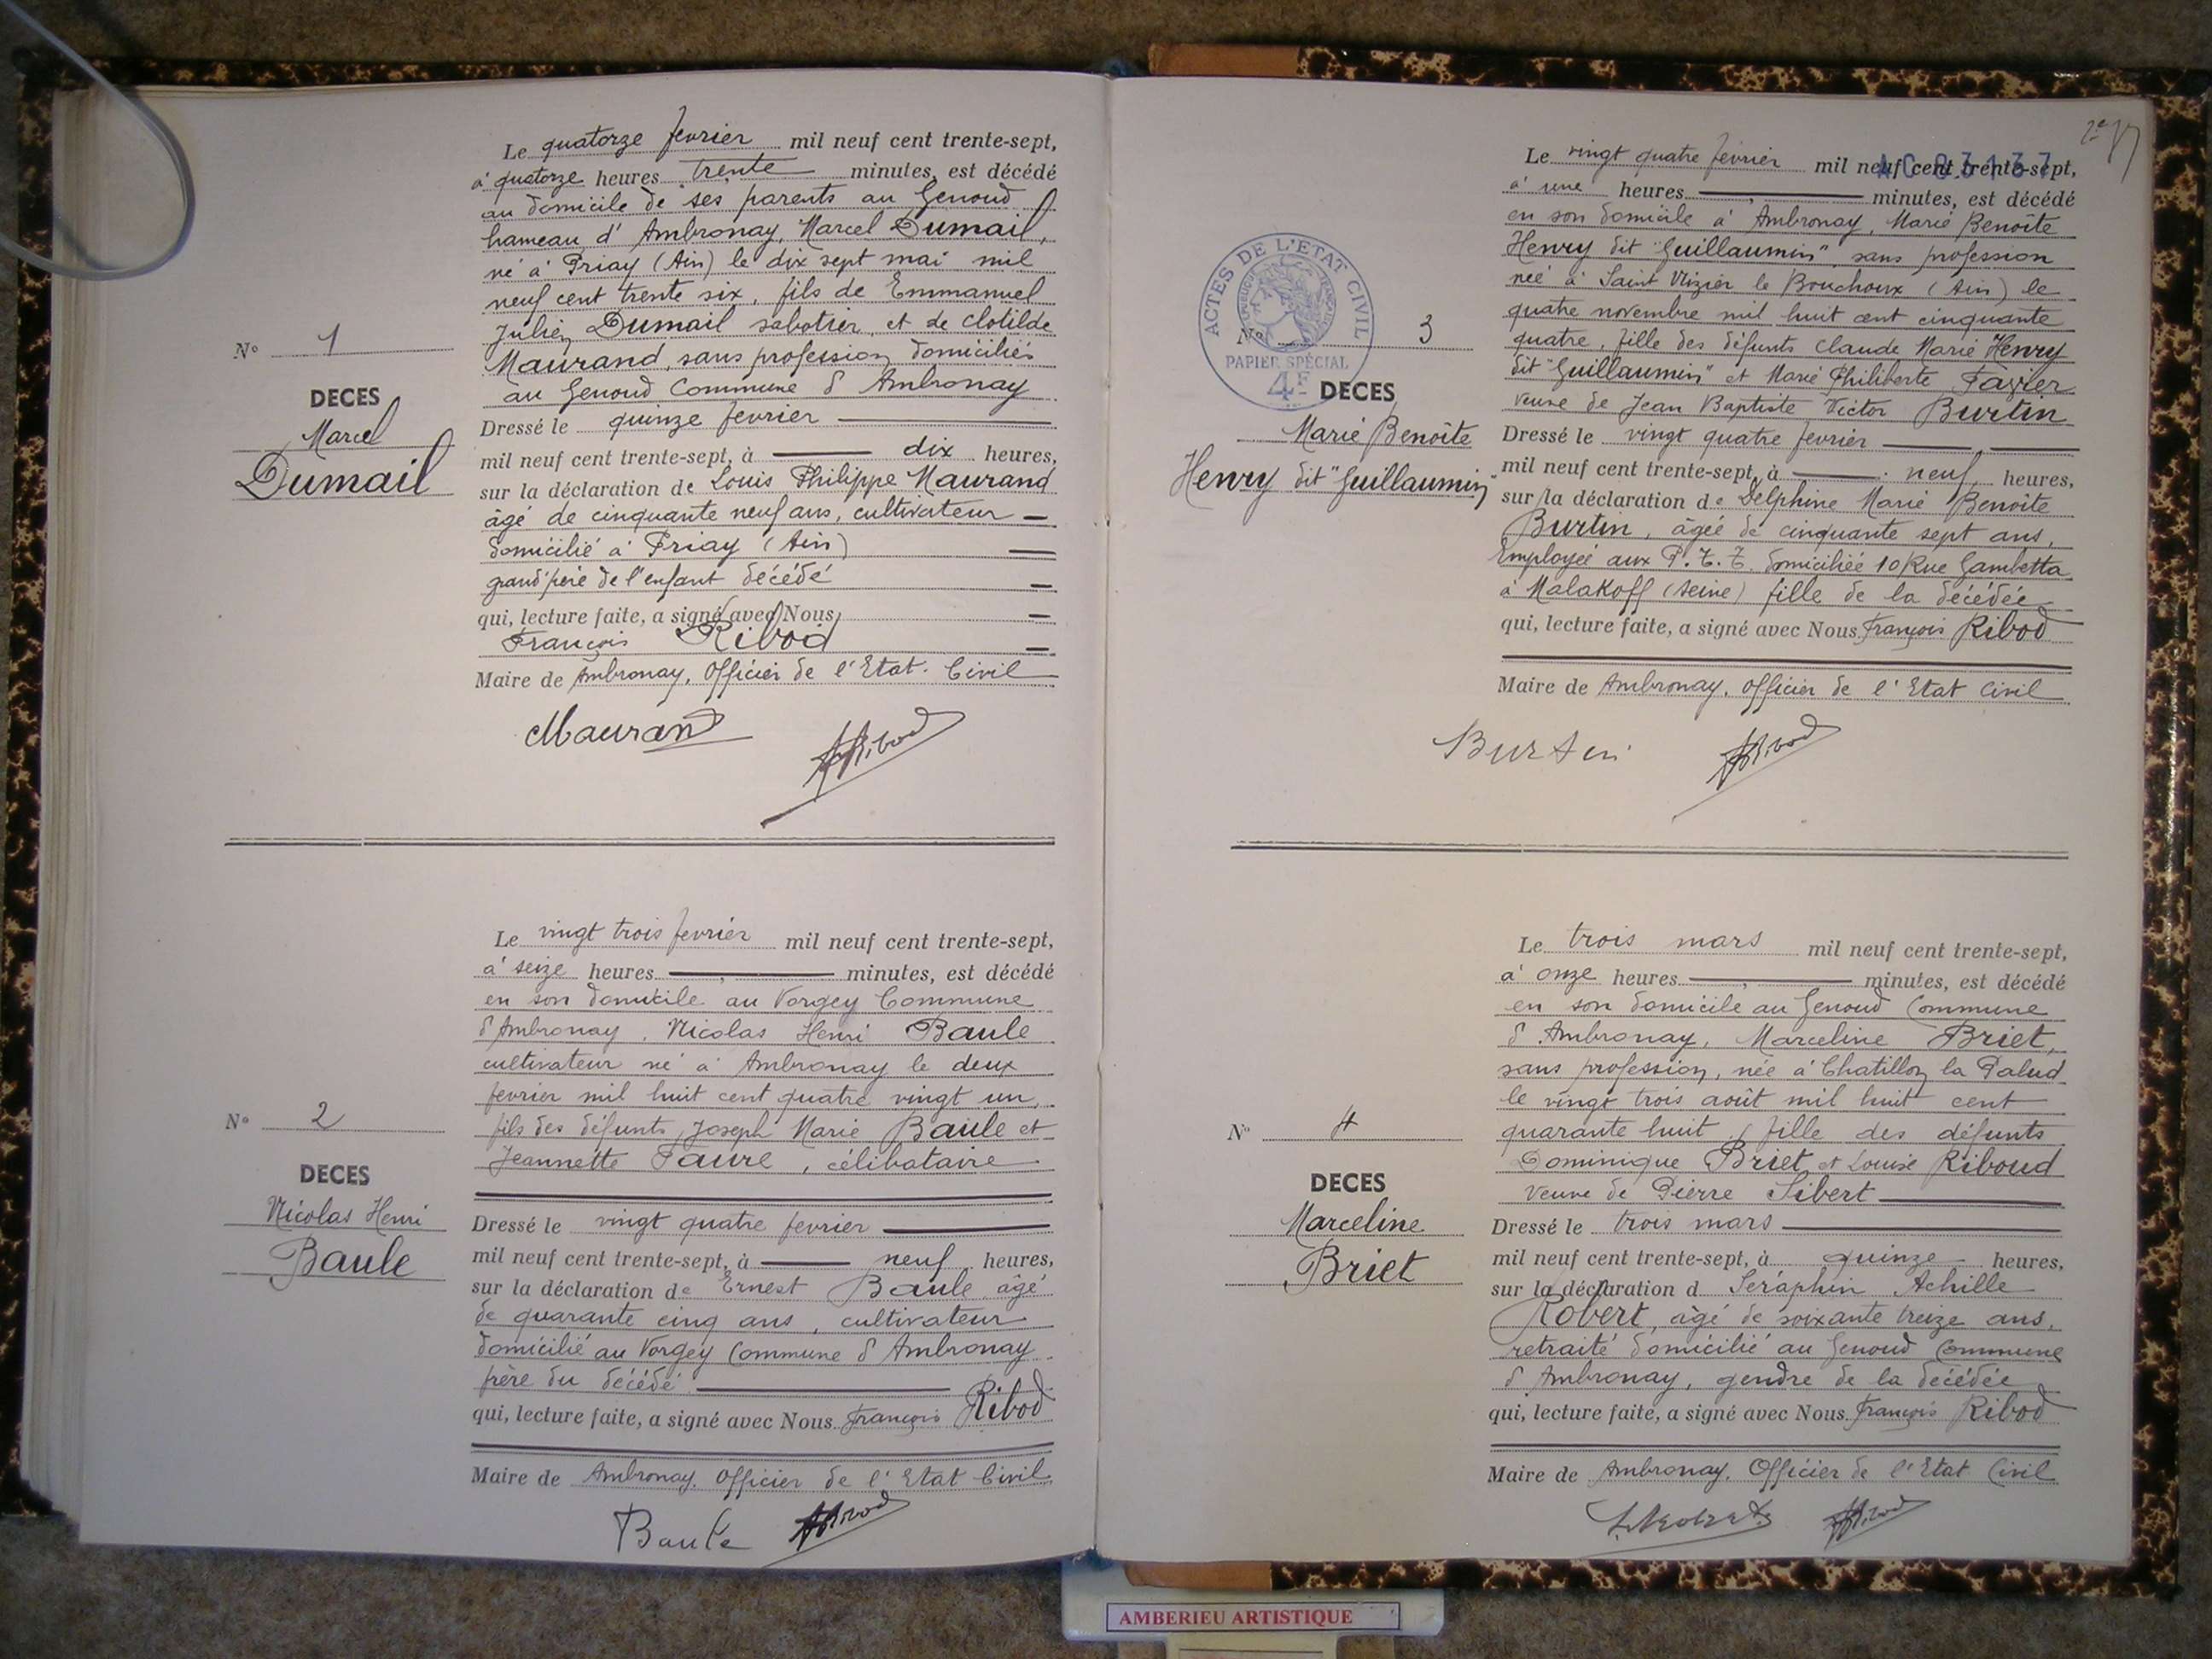 Le quatorze fevrier mil neuf cent trente-sept,
à quatorze heures trente minutes, est décédé
au domicile de ses parents au Genoud
hameau d'Ambronay, Marcel Dumail,
né à Priay (Ain) le dix sept mai mil
neuf cent trente six, fils de Emmanuel
Julien Dumail sabotier, et de Clotilde
Maurand, sans profession domiciliés
au Genoud Commune d'Ambronay
N° 1
DECES
Marcel
Dumail
Dressé le quinze fevrier
mil neuf cent trente-sept, à dix heures,
sur la déclaration de Louis Philippe Maurand
âgé de cinquante neuf ans, cultivateur
domicilié à Priay (Ain)
grand'père de l'enfant décédé
qui, lecture faite, a signé avec Nous
François Ribod
Maire de Ambronay, Officier de l'Etat Civil
Maurand
Ribod
Le vingt trois fevrier mil neuf cent trente-sept,
à seize heures minutes, est décédé
en son domicile au Vorgey Commune
d'Ambronay, Nicolas Henri Baule
cultivateur né à Ambronay le deux
fevrier mil huit cent quatre vingt un,
fils des défunts Joseph Marie Baule et
Jeannette Favre, célibataire
N° 2
DECES
Nicolas Henri
Baule
Dressé le vingt quatre fevrier
mil neuf cent trente-sept, à neuf heures,
sur la déclaration de Ernest Baule âgé
de quarante cinq ans, cultivateur
domicilié au Vorgey Commune d'Ambronay
frère du décédé
qui, lecture faite, a signé avec Nous François Ribod
Maire de Ambronay, Officier de l'Etat Civil
Baule
Ribod
Le vingt quatre fevrier mil neuf cent trente-sept,
à une heures minutes, est décédé
en son domicile à Ambronay, Marie Benoîte
Henry dit "Guillaumin", sans profession
née à Saint Nizier le Bouchoux (Ain) le
quatre novembre mil huit cent cinquante
quatre, fille des défunts Claude Marie Henry
dit "Guillaumin" et Marie Philiberte
veuve de Jean Baptiste Victor Burtin
ACTES DE L'ETAT CIVIL
REPUBLIQUE FRANÇAISE
PAPIER SPÉCIAL
4F
N° 3
DECES
Marie Benoîte
Henry dit "Guillaumin"
Dressé le vingt quatre fevrier
mil neuf cent trente-sept, à neuf heures,
sur la déclaration de Delphine Marie Benoîte
Burtin, âgée de cinquante sept ans,
Employée aux P.T.T. domiciliée 10 Rue Gambetta
à Malakoff (Seine) fille de la décédée
qui, lecture faite, a signé avec Nous François Ribod
Maire de Ambronay, Officier de l'Etat Civil
Burtin
Ribod
Le trois mars mil neuf cent trente-sept,
à onze heures minutes, est décédé
en son domicile au Genoud Commune
d'Ambronay, Marceline Briet,
sans profession, née à Chatillon la Palud
le vingt trois août mil huit cent
quarante huit, fille des défunts
Dominique Briet et Louise Riboud
veuve de Pierre Sibert
N° 4
DECES
Marceline
Briet
Dressé le trois mars
mil neuf cent trente-sept, à quinze heures,
sur la déclaration d Seraphin Achille
Robert, âgé de soixante treize ans,
retraité domicilié au Genoud Commune
d'Ambronay, gendre de la décédée
qui, lecture faite, a signé avec Nous François Ribod
Maire de Ambronay, Officier de l'Etat Civil
Ribod
AMBERIEU ARTISTIQUE